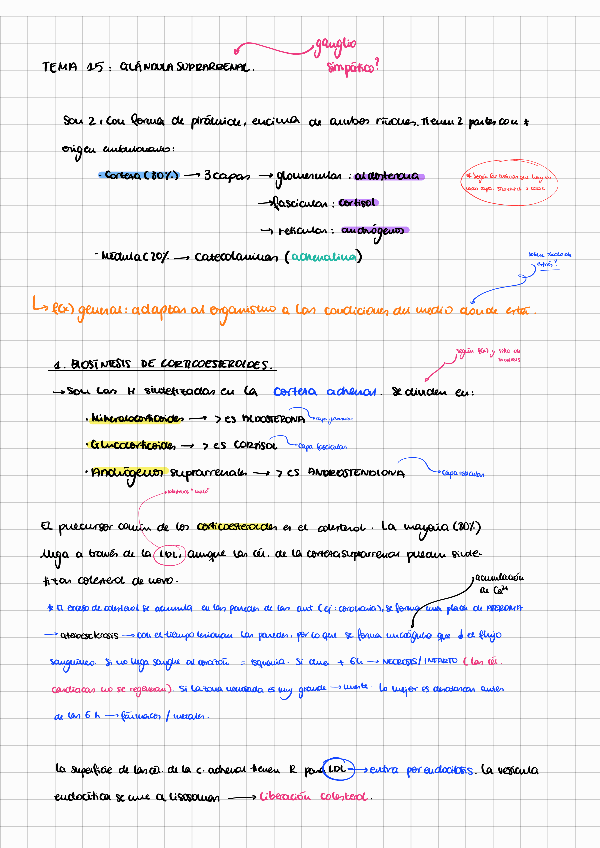 ganglio
simpático?
TEMA 15: GLÁNDULA SUPRARRENAL.
Son 2, con forma de pirámide, encima de ambos riñones. Tienen 2 partes con ≠
origen embrionario:
· Corteza (80%) → 3 capas → glomerular: aldosterona
→ fascicular: cortisol
→ reticular: andrógenos
· Médula (20% → catecolaminas (adrenalina)
sobre todo de
estrés?
↳ f(x) general: adaptar al organismo a las condiciones del medio donde está.
1. BIOSÍNTESIS DE CORTICOESTEROIDES.
según f(x) y sitio de
síntesis
→ Son las H sintetizadas en la corteza adrenal. Se dividen en:
· Mineralocorticoides → > es ALDOSTERONA → capa glomerular
· Glucocorticoides → > es CORTISOL → capa fascicular
· Andrógenos suprarrenales → > es ANDROSTENDIONA → capa reticular
colesterol "malo"
El precursor común de los corticoesteroides es el colesterol. La mayoría (80%)
llega a través de la LDL, aunque las cél. de la corteza suprarrenal pueden sinte-
tizar colesterol de novo.
acumulación
de Ca²⁺
* El exceso de colesterol se acumula en las paredes de las art (ej: coronaria), se forma una placa de ATEROMA
→ aterosclerosis → con el tiempo lesionan las paredes, por lo que se forma un coágulo que ↓ el flujo
sanguíneo. Si no llega sangre al corazón = isquemia. Si dura + 6h → NECROSIS / INFARTO (las cél.
cardiacas no se regeneran). Si la zona necrosada es muy grande → muerte. Lo mejor es desatascar antes
de las 6 h → fármacos /
La superficie de las cél. de la c. adrenal tienen R para LDL → entra por endocitosis. La vesícula
endocítica se une a lisosomas → liberación colesterol.